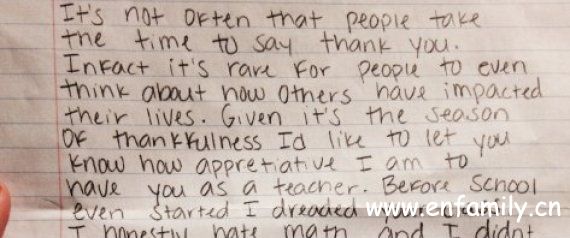 It's not often that people take
the time to say thank you.
Infact it's rare for people to even
think about how others have impacted
their lives. Given it's the season
of thankfulness I'd like to let you
know how appretiative I am to
have you as a teacher. Before school
even started I dreaded
www.enfamily.cn
I honestly hate math and I didn't